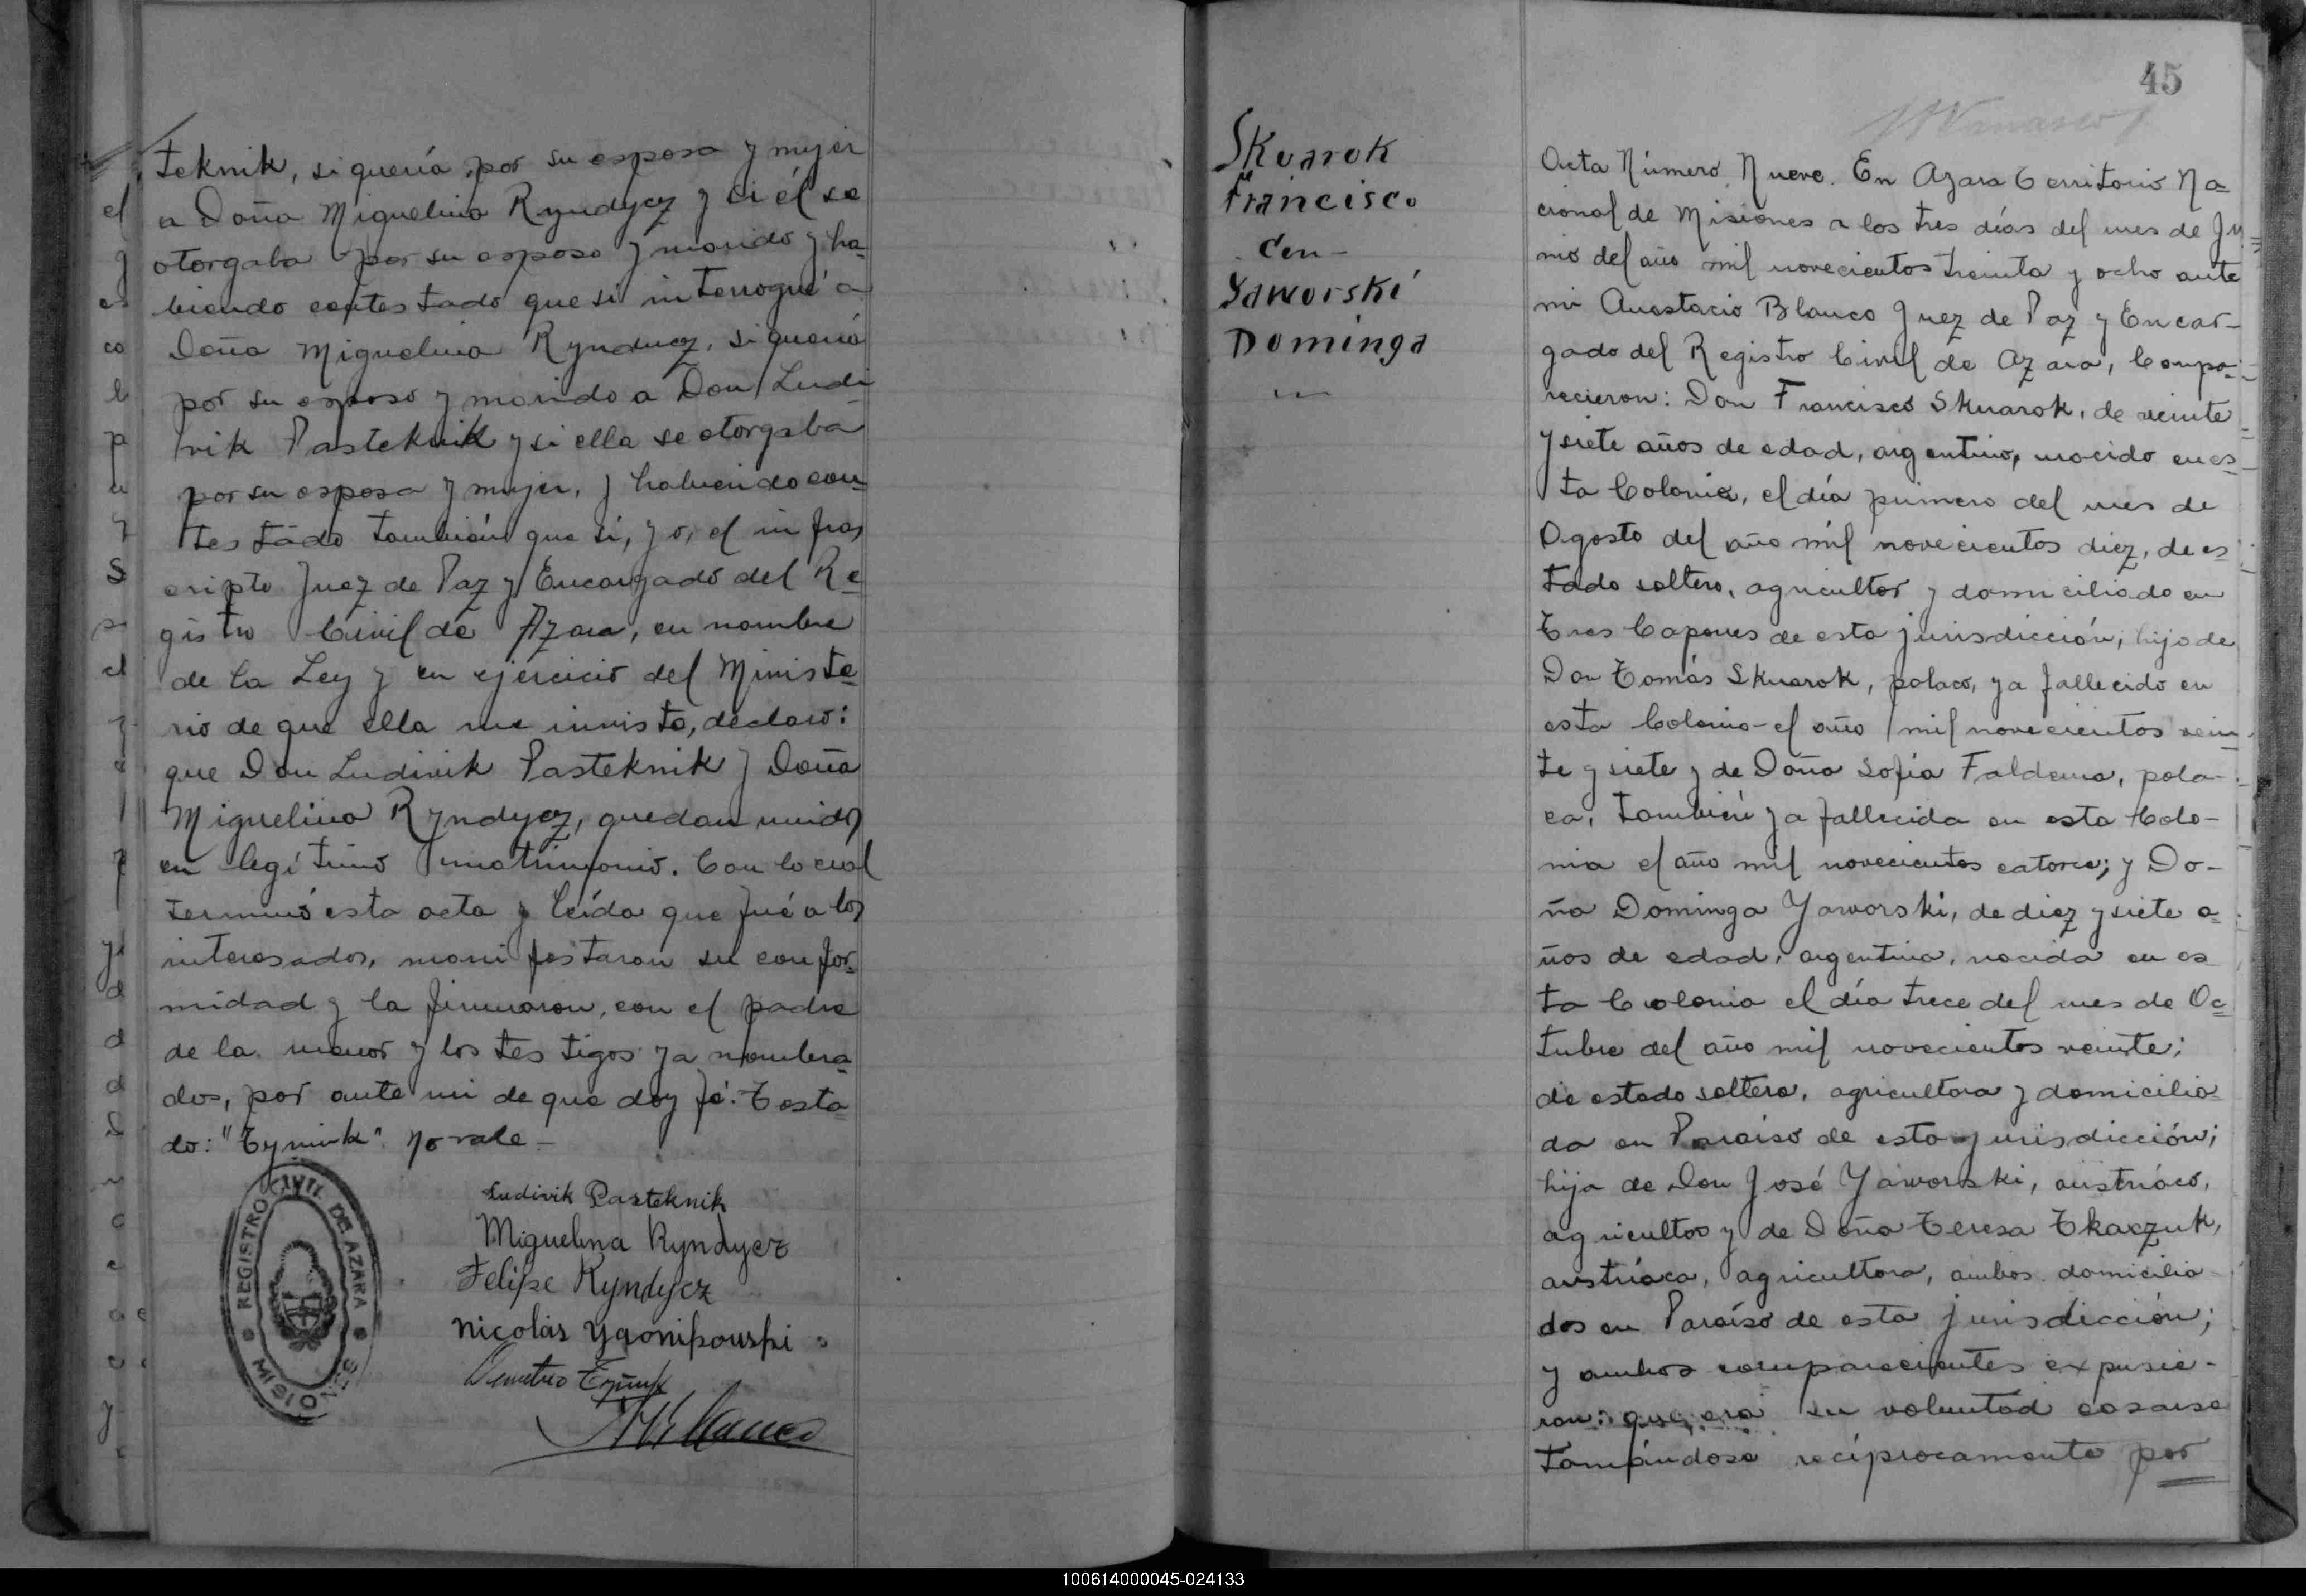 teknik, si quería por su esposa y mujer
a Doña Miguelina Ryndycz y si él se
otorgaba por su esposo y marido y ha-
biendo contestado que si interrogué a
Doña Miguelina Ryndycz, si quería
por su esposo y marido a Don Ludi-
vik Pasteknik y si ella se otorgaba
por su esposa y mujer, y habiendo con-
testado también que si, yo, el infras
cripto Juez de Paz y Encargado del Re-
gistro Civil de Azara, en nombre
de la Ley y en ejercicio del Ministe-
rio de que ella me invista, declaro:
que Don Ludivik Pasteknik y Doña
Miguelina Ryndycz, quedan unidos
en legítimo matrimonio. Con lo cual
terminó esta acta y leída que fué a los
interesados, manifestaron su confor-
midad y la firmaron, con el padre
de la menor y los testigos ya nombra-
dos, por ante mi de que doy fé. Testa-
do: "Tyniuk" No vale -
Ludivik Pasteknik
Miguelina Ryndycz
Felipe Ryndycz
Nicolás
Demetrio
REGISTRO CIVIL DE AZARA
MISIONES
45
Skvarok
Francisco
Con-
Yaworski
Dominga
Acta Número Nueve. En Azara Territorio Na
cional de Misiones a los tres días del mes de Ju=
nio del año mil novecientos treinta y ocho ante
mi Anastacio Blanco Juez de Paz y Encar-
gado del Registro Civil de Azara, Compa-
recieron: Don Francisco Skvarok, de veinte
y siete años de edad, argentino, nacido en es-
ta Colonia, el día primero del mes de
Agosto del año mil novecientos diez, de es-
tado soltero, agricultor y domiciliado en
Tres Capones de esta jurisdicción, hijo de
Don Tomás Skvarok, polaco, ya fallecido en
esta Colonia el año mil novecientos vein-
te y siete y de Doña Sofía Faldema, pola-
ca, también ya fallecida en esta Colo-
nia el año mil novecientos catorce; y Do-
ña Dominga Yaworski, de diez y siete a-
ños de edad, argentina, nacida en es
ta Colonia el día trece del mes de Oc-
tubre del año mil novecientos veinte;
de estado soltera, agricultora y domicilia-
da en Paraíso de esta jurisdicción;
hija de Don José Yaworski, austríaco,
agricultor y de Doña Teresa Tkaczuk,
austríaca, agricultora, ambos domicilia
dos en Paraíso de esta jurisdicción;
y ambos comparecientes expusie-
ron: que era su voluntad casarse
tomándose recíprocamente por
100614000045-024133